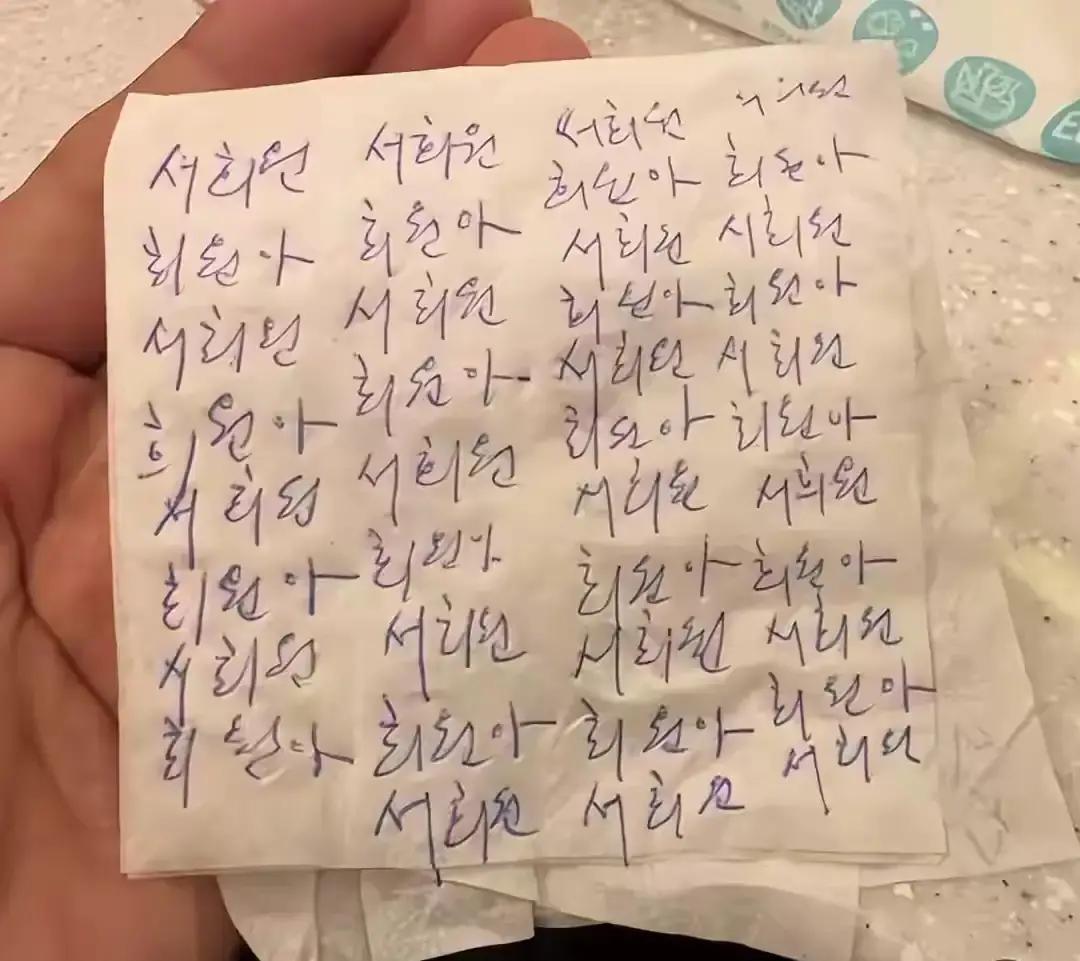 서희원
희원아
서희원
희원아
서희원
희원아
서희원
희원아
서희원
희원아
서희원
희원아
서희원
희원아
서희원
희원아
서희원
서희원
희원아
서희원
희원아
서희원
희원아
서희원
희원아
서희원
희원아
서희원
희원아
서희원
희원아
서희원
희원아
서희원
희원아
서희원